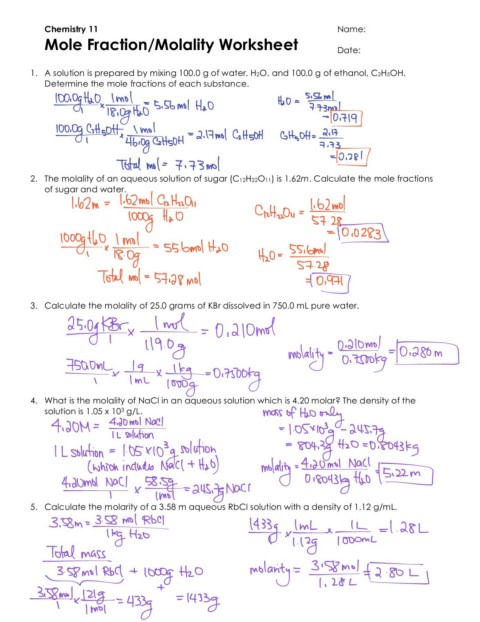 Chemistry 11
Name:
Mole Fraction/Molality Worksheet
Date:
1. A solution is prepared by mixing 100.0 g of water, H2O, and 100.0 g of ethanol, C2H5OH.
Determine the mole fractions of each substance.
100.0g H2O / 1 × 1mol / 18.0g H2O = 5.56 mol H2O
H2O = 5.56 mol / 7.73mol = 0.719
100.0g C2H5OH / 1 × 1mol / 46.0g C2H5OH = 2.17mol C2H5OH
C2H5OH = 2.17 / 7.73 = 0.281
Total mol = 7.73mol
2. The molality of an aqueous solution of sugar (C12H22O11) is 1.62m. Calculate the mole fractions
of sugar and water.
1.62m = 1.62mol C12H22O11 / 1000g H2O
C12H22O11 = 1.62mol / 57.28 = 0.0283
1000g H2O / 1 × 1mol / 18.0g = 55.6mol H2O
H2O = 55.6mol / 57.28 = 0.971
Total mol = 57.28 mol
3. Calculate the molality of 25.0 grams of KBr dissolved in 750.0 mL pure water.
25.0g KBr / 1 × 1mol / 119.0g = 0.210mol
molality = 0.210mol / 0.7500kg = 0.280m
750.0mL / 1 × 1g / 1mL × 1kg / 1000g = 0.7500kg
4. What is the molality of NaCl in an aqueous solution which is 4.20 molar? The density of the
solution is 1.05 x 10³ g/L.
mass of H2O only
4.20M = 4.20mol NaCl / 1L solution
= 1.05×10³g - 245.7g
= 804.3g H2O = 0.8043kg
1L solution = 1.05×10³g solution
(which includes NaCl + H2O)
molality = 4.20mol NaCl / 0.8043kg H2O = 5.22m
4.20mol NaCl / 1 × 58.5g / 1mol = 245.7g NaCl
5. Calculate the molarity of a 3.58 m aqueous RbCl solution with a density of 1.12 g/mL.
3.58m = 3.58 mol RbCl / 1kg H2O
1433g / 1 × 1mL / 1.12g × 1L / 1000mL = 1.28L
Total mass
3.58mol RbCl + 1000g H2O
molarity = 3.58mol / 1.28L = 2.80L
3.58mol / 1 × 121g / 1mol = 433g + = 1433g